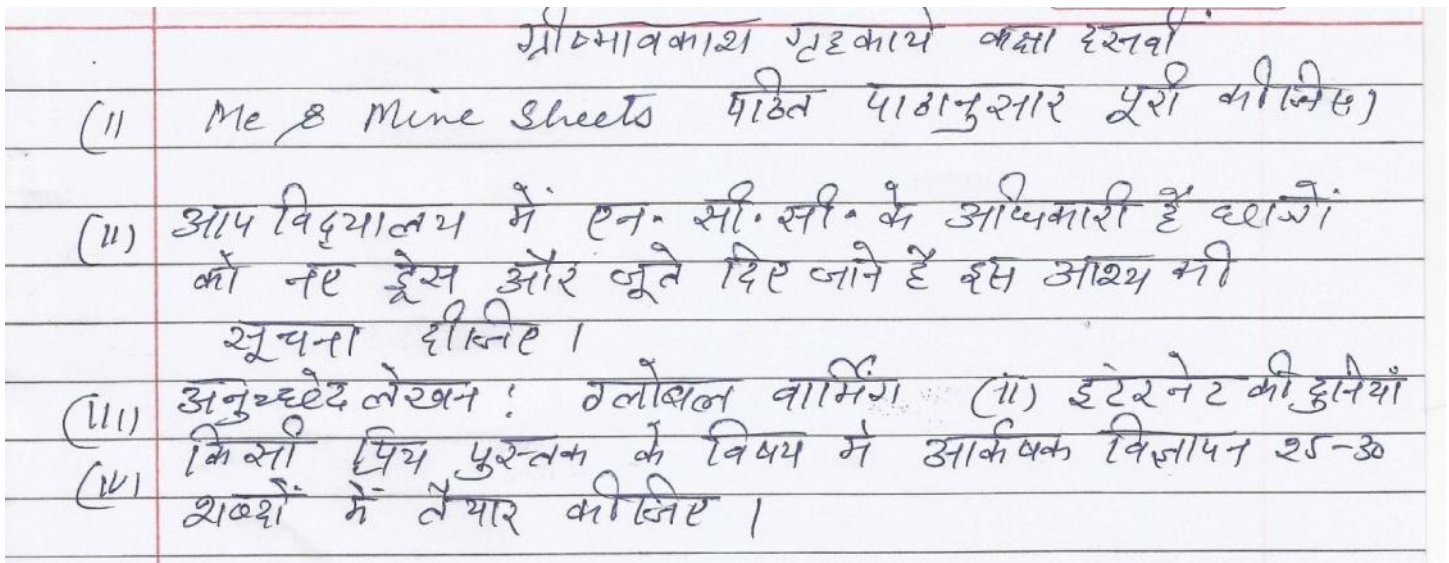 ग्रीष्मावकाश गृहकार्य कक्षा दसवीं
(I) Me & Mine Sheets पठित पाठानुसार पूरी कीजिए।
(II) आप विद्यालय में एन. सी. सी. के अधिकारी है छात्रों
को नए ड्रेस और जूते दिए जाने है इस आश्य की
सूचना दीजिए।
(III) अनुच्छेद लेखन: ग्लोबल वार्मिंग (ii) इटेरनेट की दुनियाँ
(IV) किसी प्रिय पुस्तक के विषय मे आर्कषक विज्ञापन २५-३०
शब्दों में तैयार कीजिए।